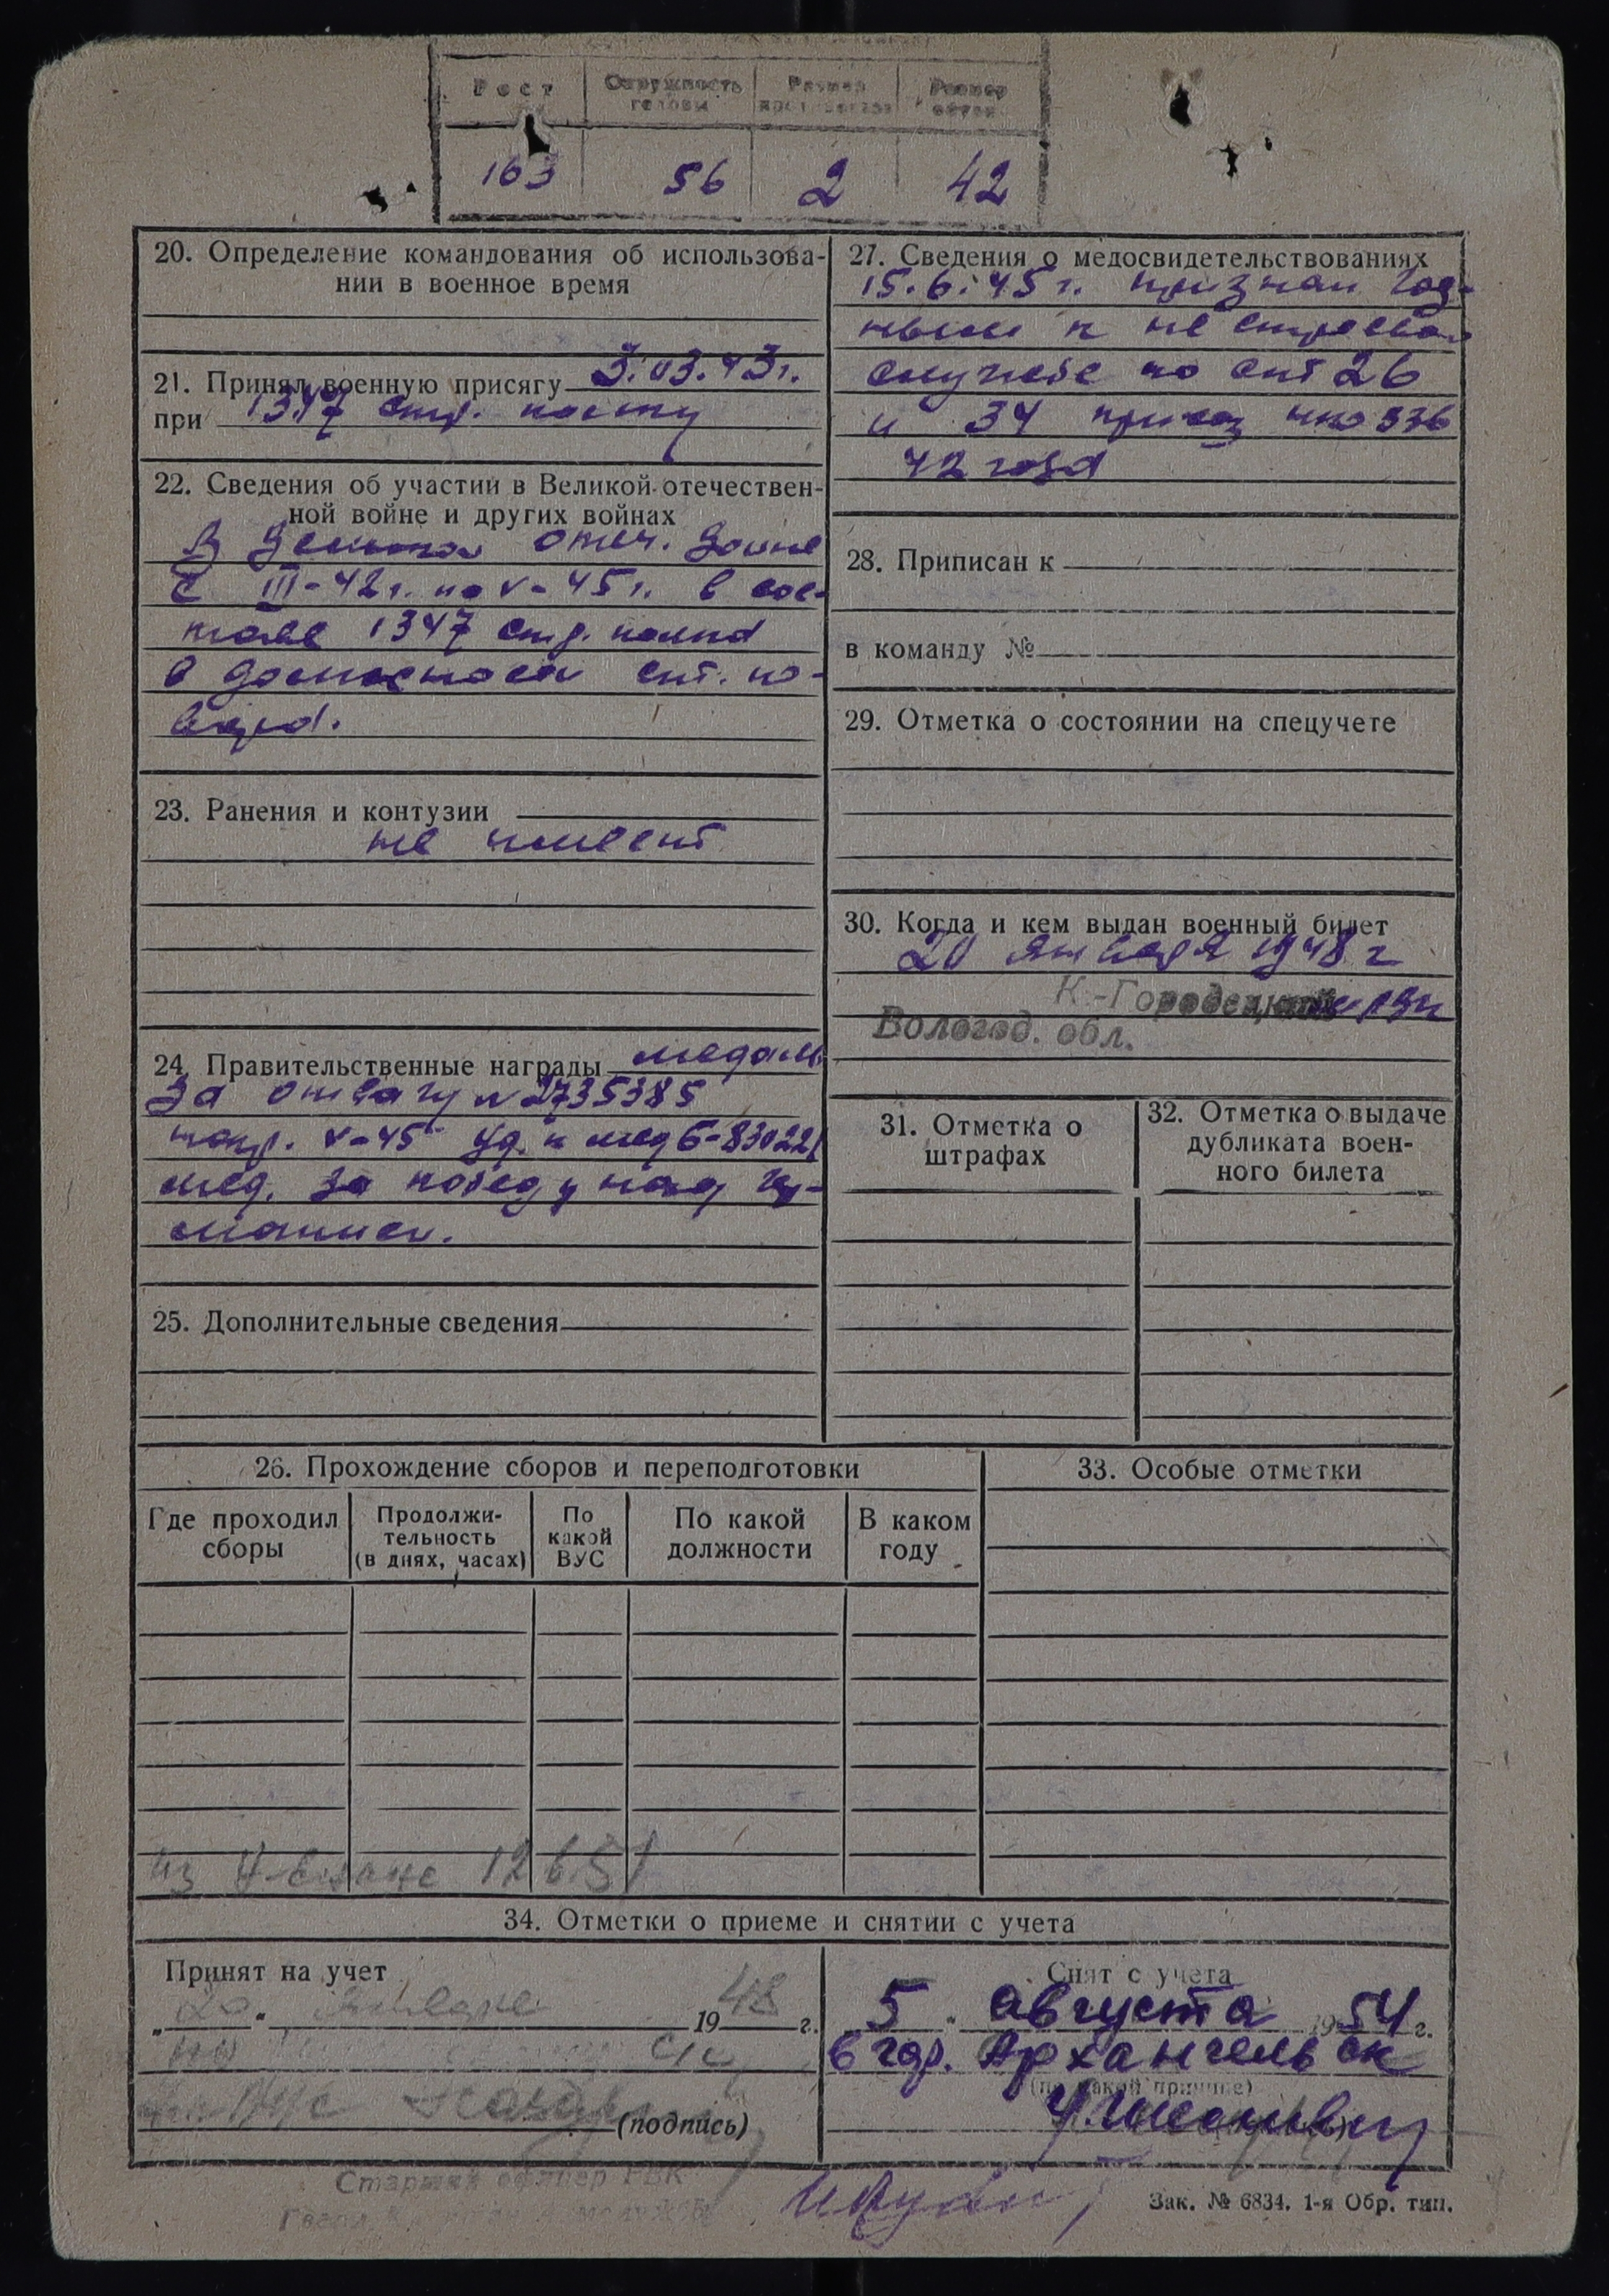 Рост Окружность головы Размер Размер
163 56 2 42
20. Определение командования об использова-
нии в военное время
21. Принял военную присягу 3.03.43г.
при 1347 стр. полку
22. Сведения об участии в Великой отечествен-
ной войне и других войнах
В отеч. войне
с III-42г. по V-45г. в сос-
таве 1347 стр. полка
в должности ст. по-
вара.
23. Ранения и контузии
не имеет
24. Правительственные награды медаль
За отвагу № 2735385
V-45 уд. к мед Б-830221
мед. За победу над Гер-
манией.
25. Дополнительные сведения
26. Прохождение сборов и переподготовки
Где проходил сборы
Продолжи-
тельность
(в днях, часах)
По
какой
ВУС
По какой
должности
В каком
году
из 12 6.51
27. Сведения о медосвидетельствованиях
15.6.45г. признан год-
ным к не строевой
службе по ст 26
и 34 приказ нко 336
42 года
28. Приписан к
в команду №
29. Отметка о состоянии на спецучете
30. Когда и кем выдан военный билет
20 января 1948 г
К-Городецкий РВК
Вологод. обл.
31. Отметка о
штрафах
32. Отметка о выдаче
дубликата воен-
ного билета
33. Особые отметки
34. Отметки о приеме и снятии с учета
Принят на учет
„20“ января 1948 г.
(подпись)
Старший офицер РВК
Снят с учета
5 " августа 1954 г.
в гор. Архангельск
(по какой причине)
Зак. № 6834. 1-я Обр. тип.